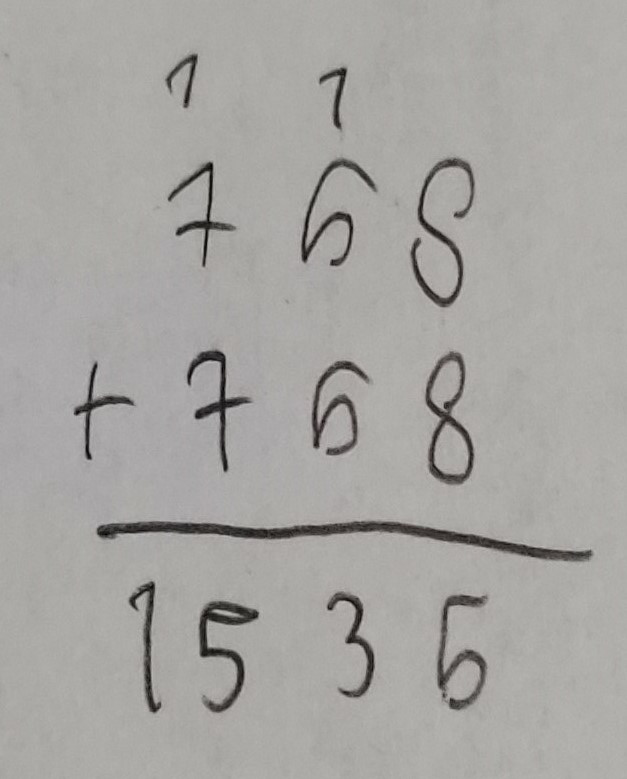 1 1
768
+ 768
1536